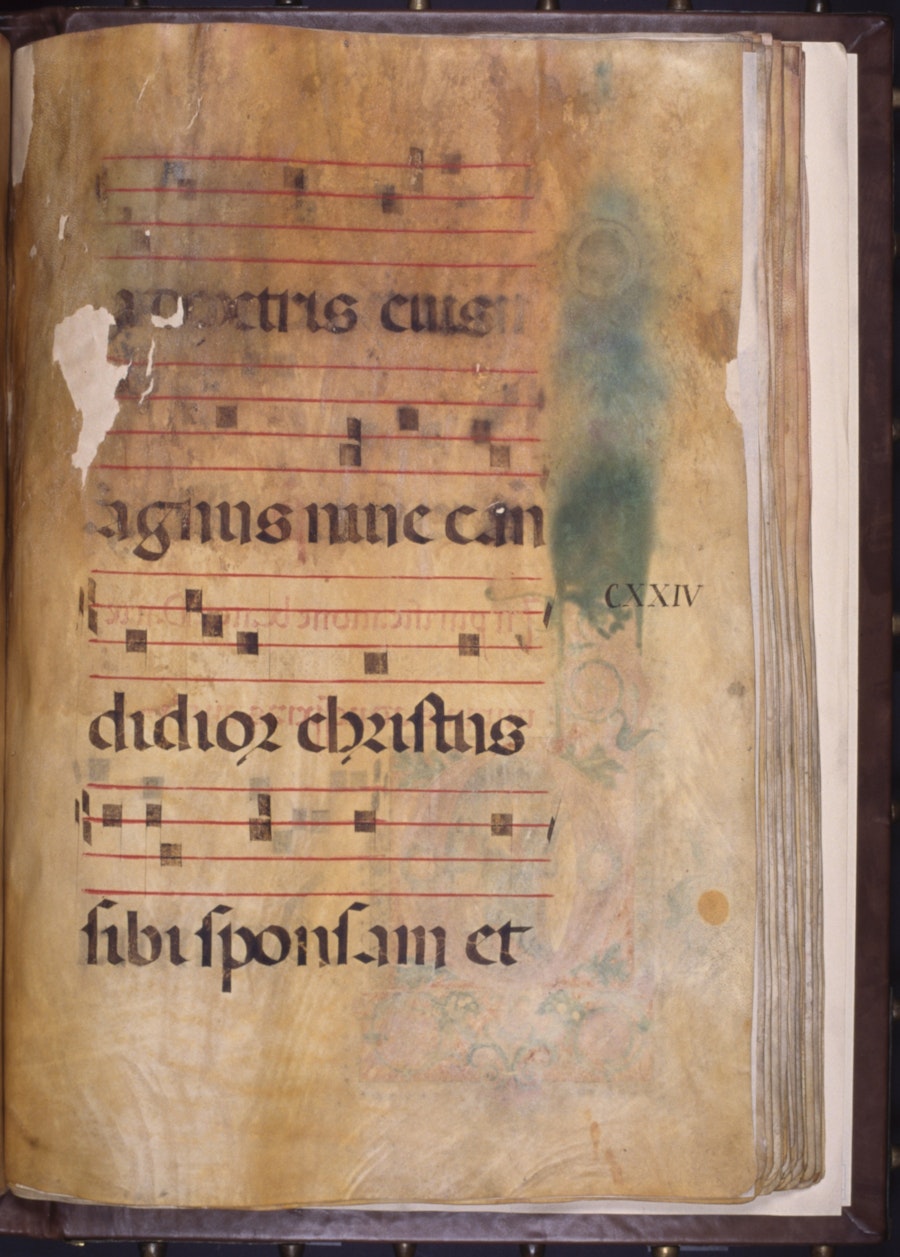 a dextris eius
agnus niue can
CXXIV
didior chriſtus
ſibi ſponſam et